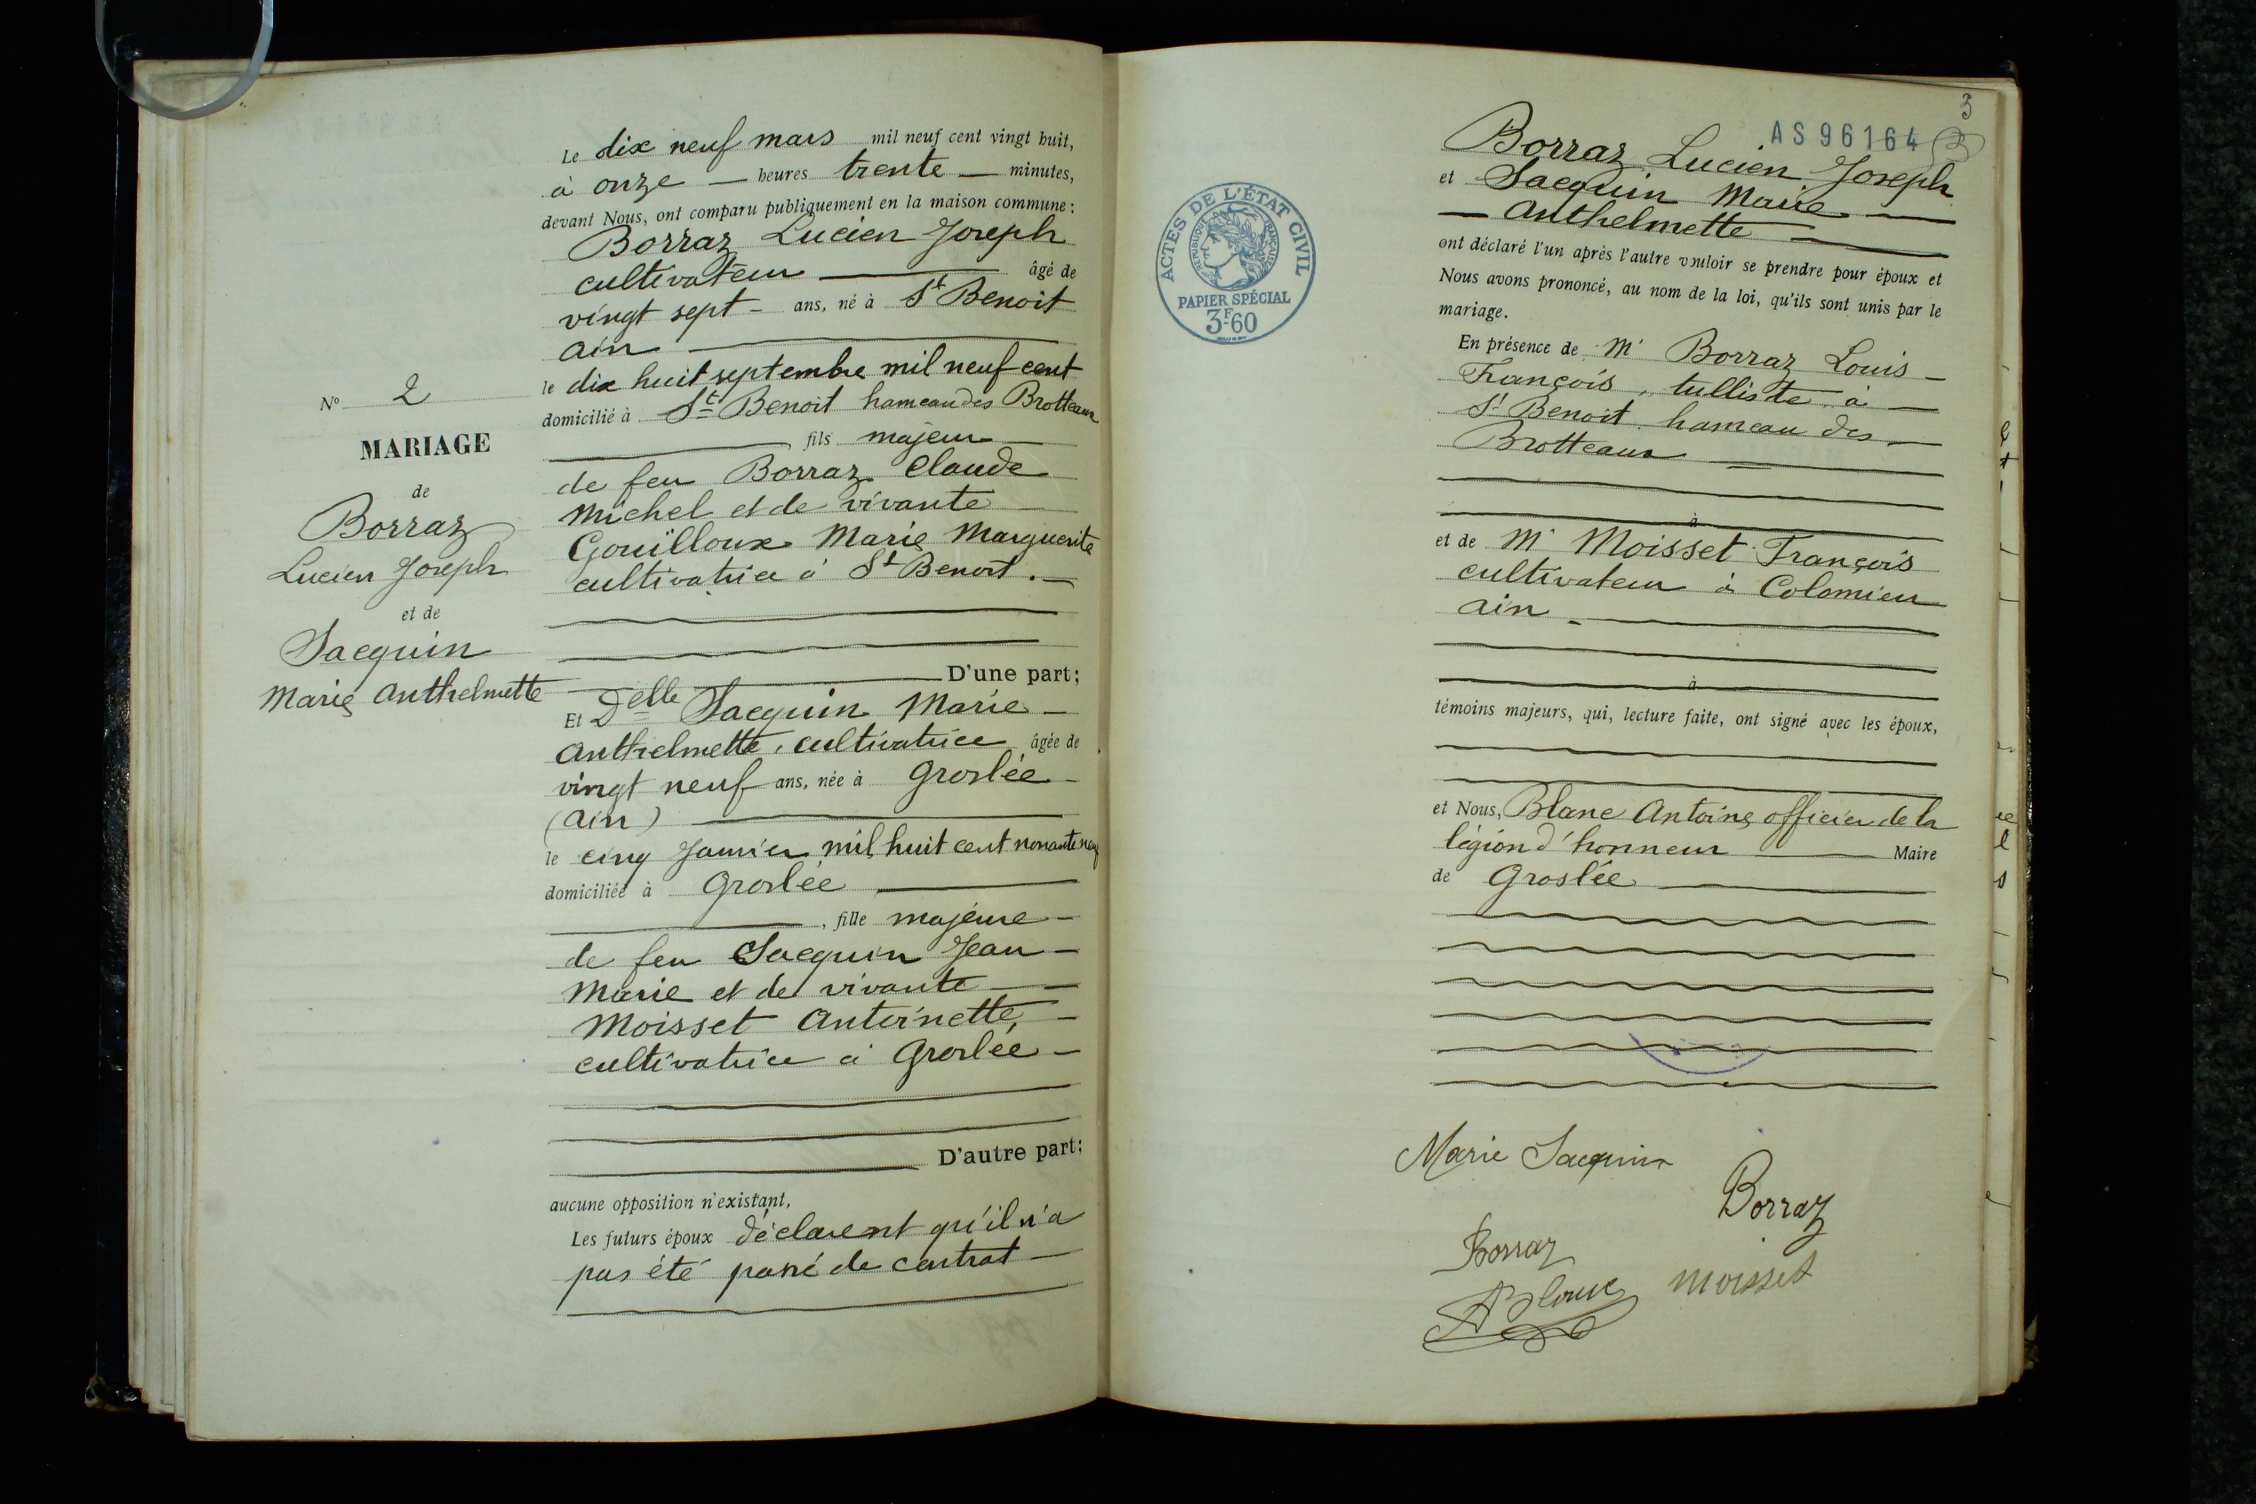 Le dix neuf mars mil neuf cent vingt huit,
à onze — heures trente — minutes,
devant Nous, ont comparu publiquement en la maison commune :
Borraz Lucien Joseph
cultivateur — âgé de
vingt sept - ans, né à St Benoit
ain
le dix huit septembre mil neuf cent
domicilié à St Benoit hameau des Brotteaux
fils majeur
de feu Borraz Claude
Michel et de vivante
Gouilloux Marie Marguerite
cultivatrice à St Benoit. —
D'une part;
Et Delle Jacquin Marie —
Anthelmette, cultivatrice âgée de
vingt neuf ans, née à Groslée -
(ain)
le cinq Janvier mil huit cent nonante neuf
domiciliée à Groslée
, fille majeure -
de feu Jacquin Jean -
Marie et de vivante —
Moisset Antoinette, -
cultivatrice à Groslée -
D'autre part;
aucune opposition n'existant,
Les futurs époux déclarent qu'il n'a
pas été passé de contrat —
No 2
MARIAGE
de
Borraz
Lucien Joseph
et de
Jacquin
Marie Anthelmette
3
AS96164
ACTES DE L'ÉTAT CIVIL
RÉPUBLIQUE FRANÇAISE
PAPIER SPÉCIAL
3F-60
Borraz Lucien Joseph
et Jacquin Marie —
— Anthelmette —
ont déclaré l'un après l'autre vouloir se prendre pour époux et
Nous avons prononcé, au nom de la loi, qu'ils sont unis par le
mariage.
En présence de Mr Borraz Louis -
François, tulliste à —
St Benoit hameau des —
Brotteaux
à
et de Mr Moisset François
cultivateur à Colomieu
ain -
à
témoins majeurs, qui, lecture faite, ont signé avec les époux,
et Nous, Blanc Antoine officier de la
légion d'honneur — Maire
de Groslée
Marie Jacquin
Borraz
Borraz
ABlanc
Moisset